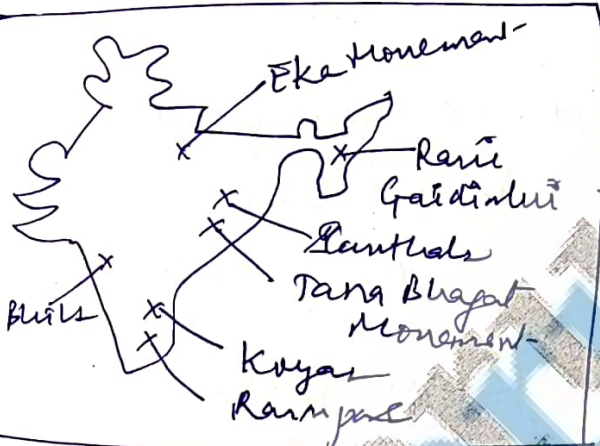 Eke Movement
Rani
Gaidinlui
Santhals
Tana Bhagat
Movement
Bhils
Koyas
Rampase